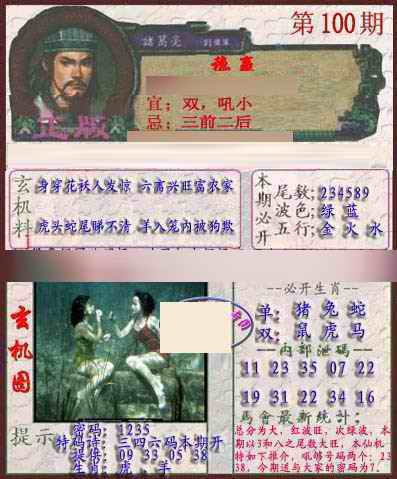 第100期
諸葛亮
劉備軍
穩贏
宜；双，吼小
忌；三前二后
正版
玄机料
身穿花袄人发惊 六畜兴旺富农家
虎头蛇尾睇不清 羊入笼内被狗欺
本期必开
尾数;234589
波色;绿 蓝
五行;金 火 水
玄机图
必开生肖
单: 猪 兔 蛇
双: 鼠 虎 马
内部泄码
11 23 35 07 22
19 31 22 34 16
馬會最新统计:
总分为大，红波旺，次绿波，本
期以3和八之尾数大旺，本仙机
特如下推介，吼够号码两个：2
38，今期送与大家的密码为7．
提示
密码: 1235
特码诗: 三四六码本期开
提供: 09 33 05 38
生肖: 虎，羊